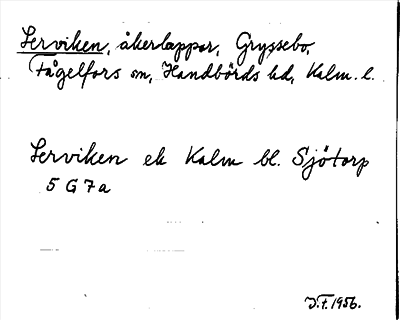 Serviken, åkerlappar, Gryssebo,
Fågelfors sn, Handbörds hd, Kalm. l.
Serviken ek Kalm bl. Sjötorp
5 G 7 a
J.F. 1956.